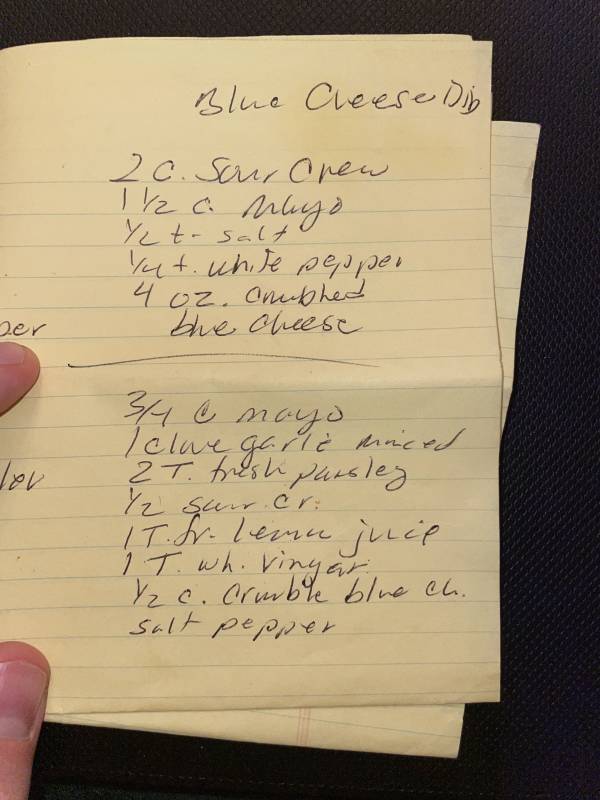 Blue Cheese Dip
2 C. Sour Crem
1 1/2 C. Mayo
1/2 t- salt
1/4 t. white pepper
4 oz. crumbled
blue cheese
per
3/4 C mayo
1 clove garlic minced
2 T. fresh parsley
1/2 sour cr.
1 T. fr. lemon juice
1 T. wh. vinyar.
1/2 c. Crumble blue ch.
salt pepper